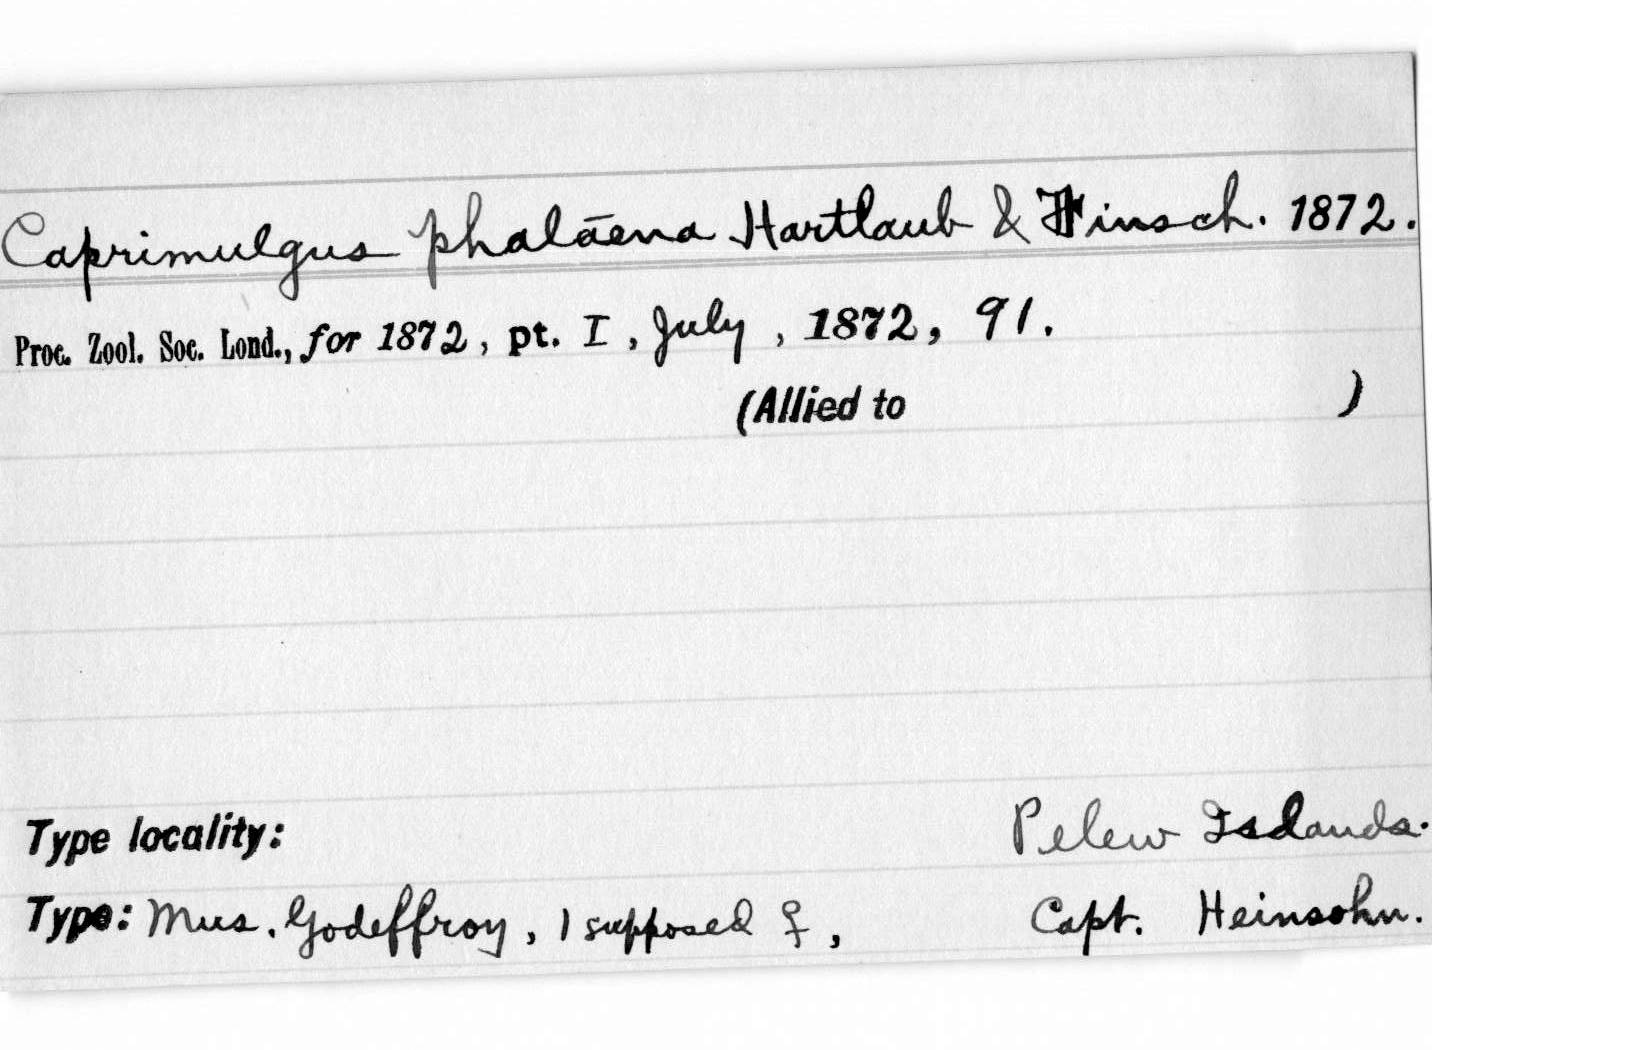 Caprimulgus phalāena Hartlaub & Finsch. 1872.
Proc. Zool. Soc. Lond., for 1872, pt. I, July, 1872, 91.
(Allied to )
Type locality: Pelew Islands.
Type: Mus. Godeffroy, 1 supposed ♀, Capt. Heinsohn.